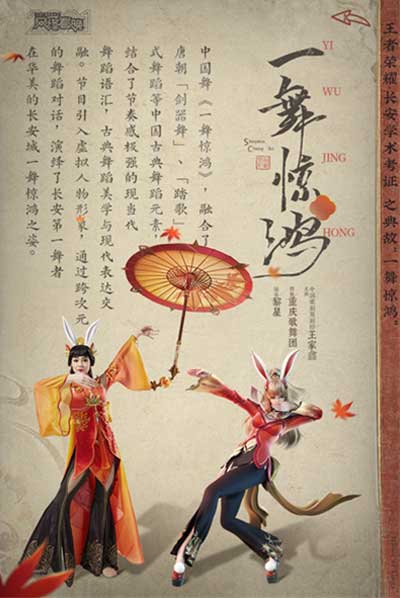 王者荣耀长安学术考证 之典故：一舞惊鸿。
一舞惊鸿
YI
WU
JING
HONG
中国歌剧舞剧院 王家鑫
重庆歌舞团
编导 黎星
中国舞《一舞惊鸿》，融合了
唐朝「剑器舞」、「踏歌」
式舞蹈等中国古典舞蹈元素，
结合了节奏感极强的现当代
舞蹈语汇，古典舞蹈美学与现代表达交
融。节目引入虚拟人物形象，通过跨次元
的舞蹈对话，演绎了长安第一舞者
在华美的长安城一舞惊鸿之姿。